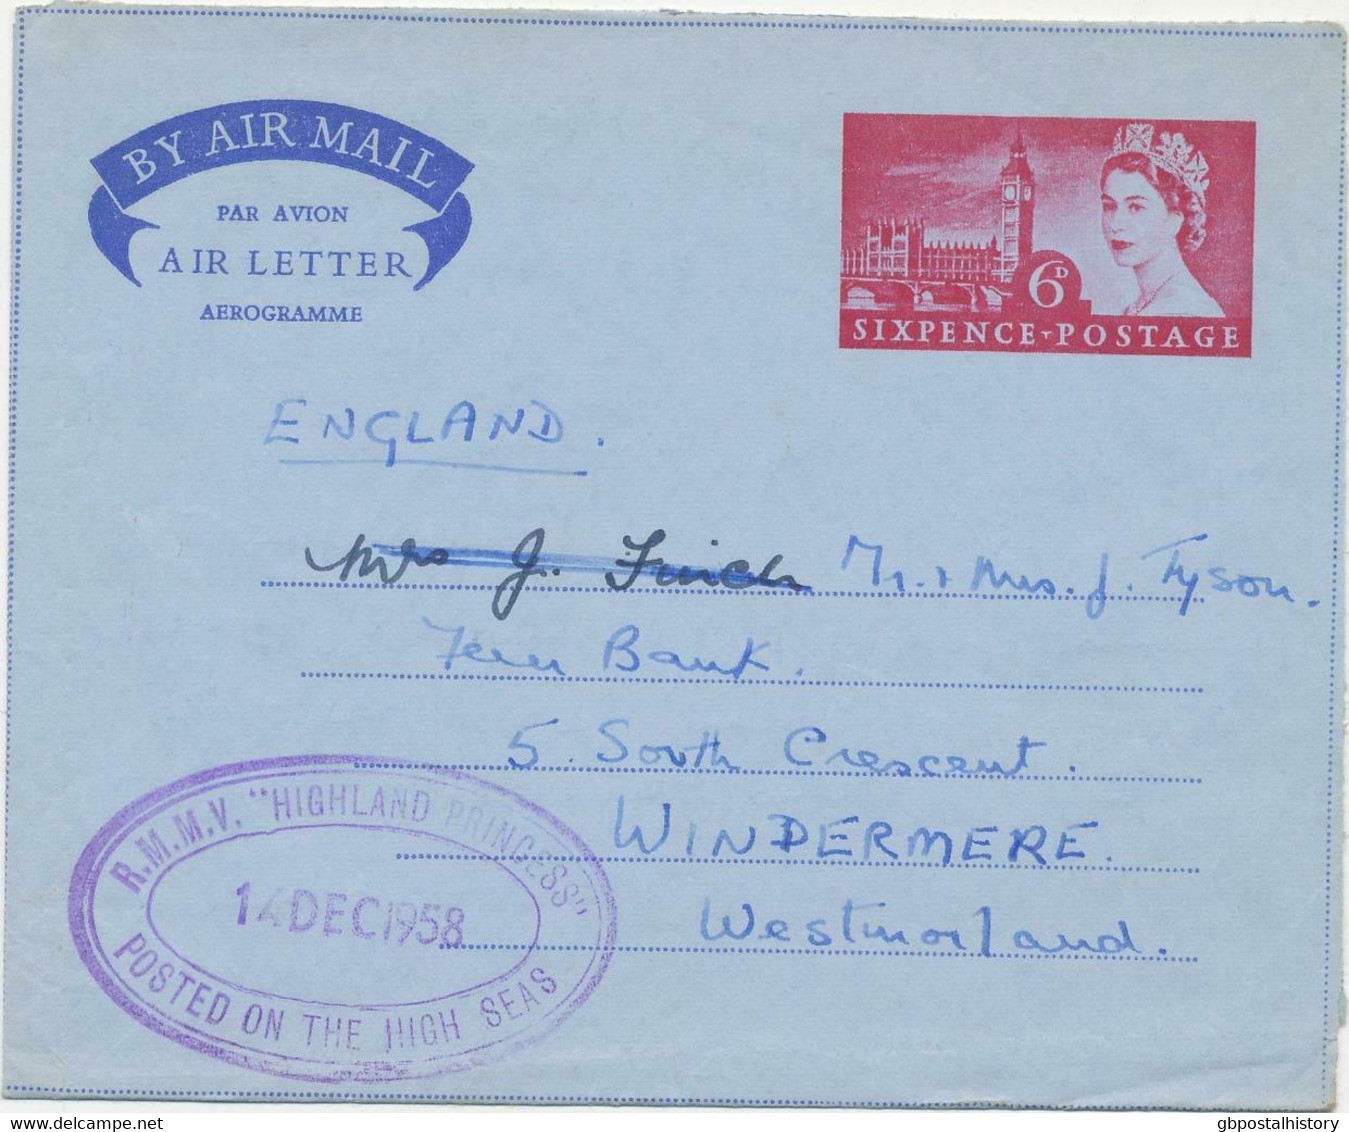 BY AIR MAIL
PAR AVION
AIR LETTER
AEROGRAMME
6D
SIXPENCE POSTAGE
ENGLAND.
Mrs J. Finch Mr. & Mrs. J. Tyson.
Fern Bank.
5. South Crescent.
WINDERMERE.
Westmorland.
R.M.M.V. "HIGHLAND PRINCESS"
14 DEC 1958
POSTED ON THE HIGH SEAS
delcampe.net
gbpostalhistory